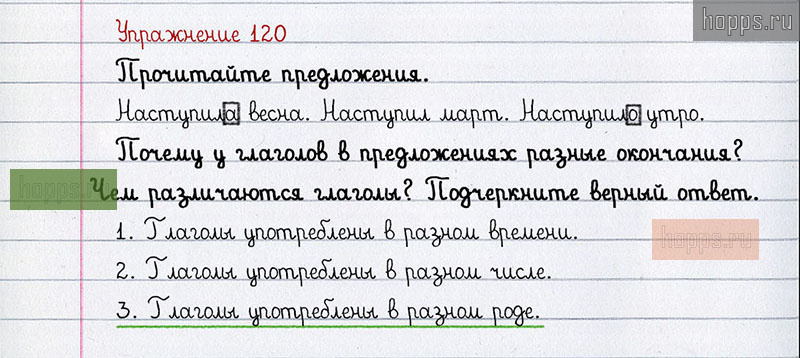 hopps.ru
Упражнение 120
Прочитайте предложения.
Наступила весна. Наступил март. Наступило утро.
Почему у глаголов в предложениях разные окончания?
hopps.ru
Чем различаются глаголы? Подчеркните верный ответ.
1. Глаголы употреблены в разном времени.
hopps.ru
2. Глаголы употреблены в разном числе.
3. Глаголы употреблены в разном роде.